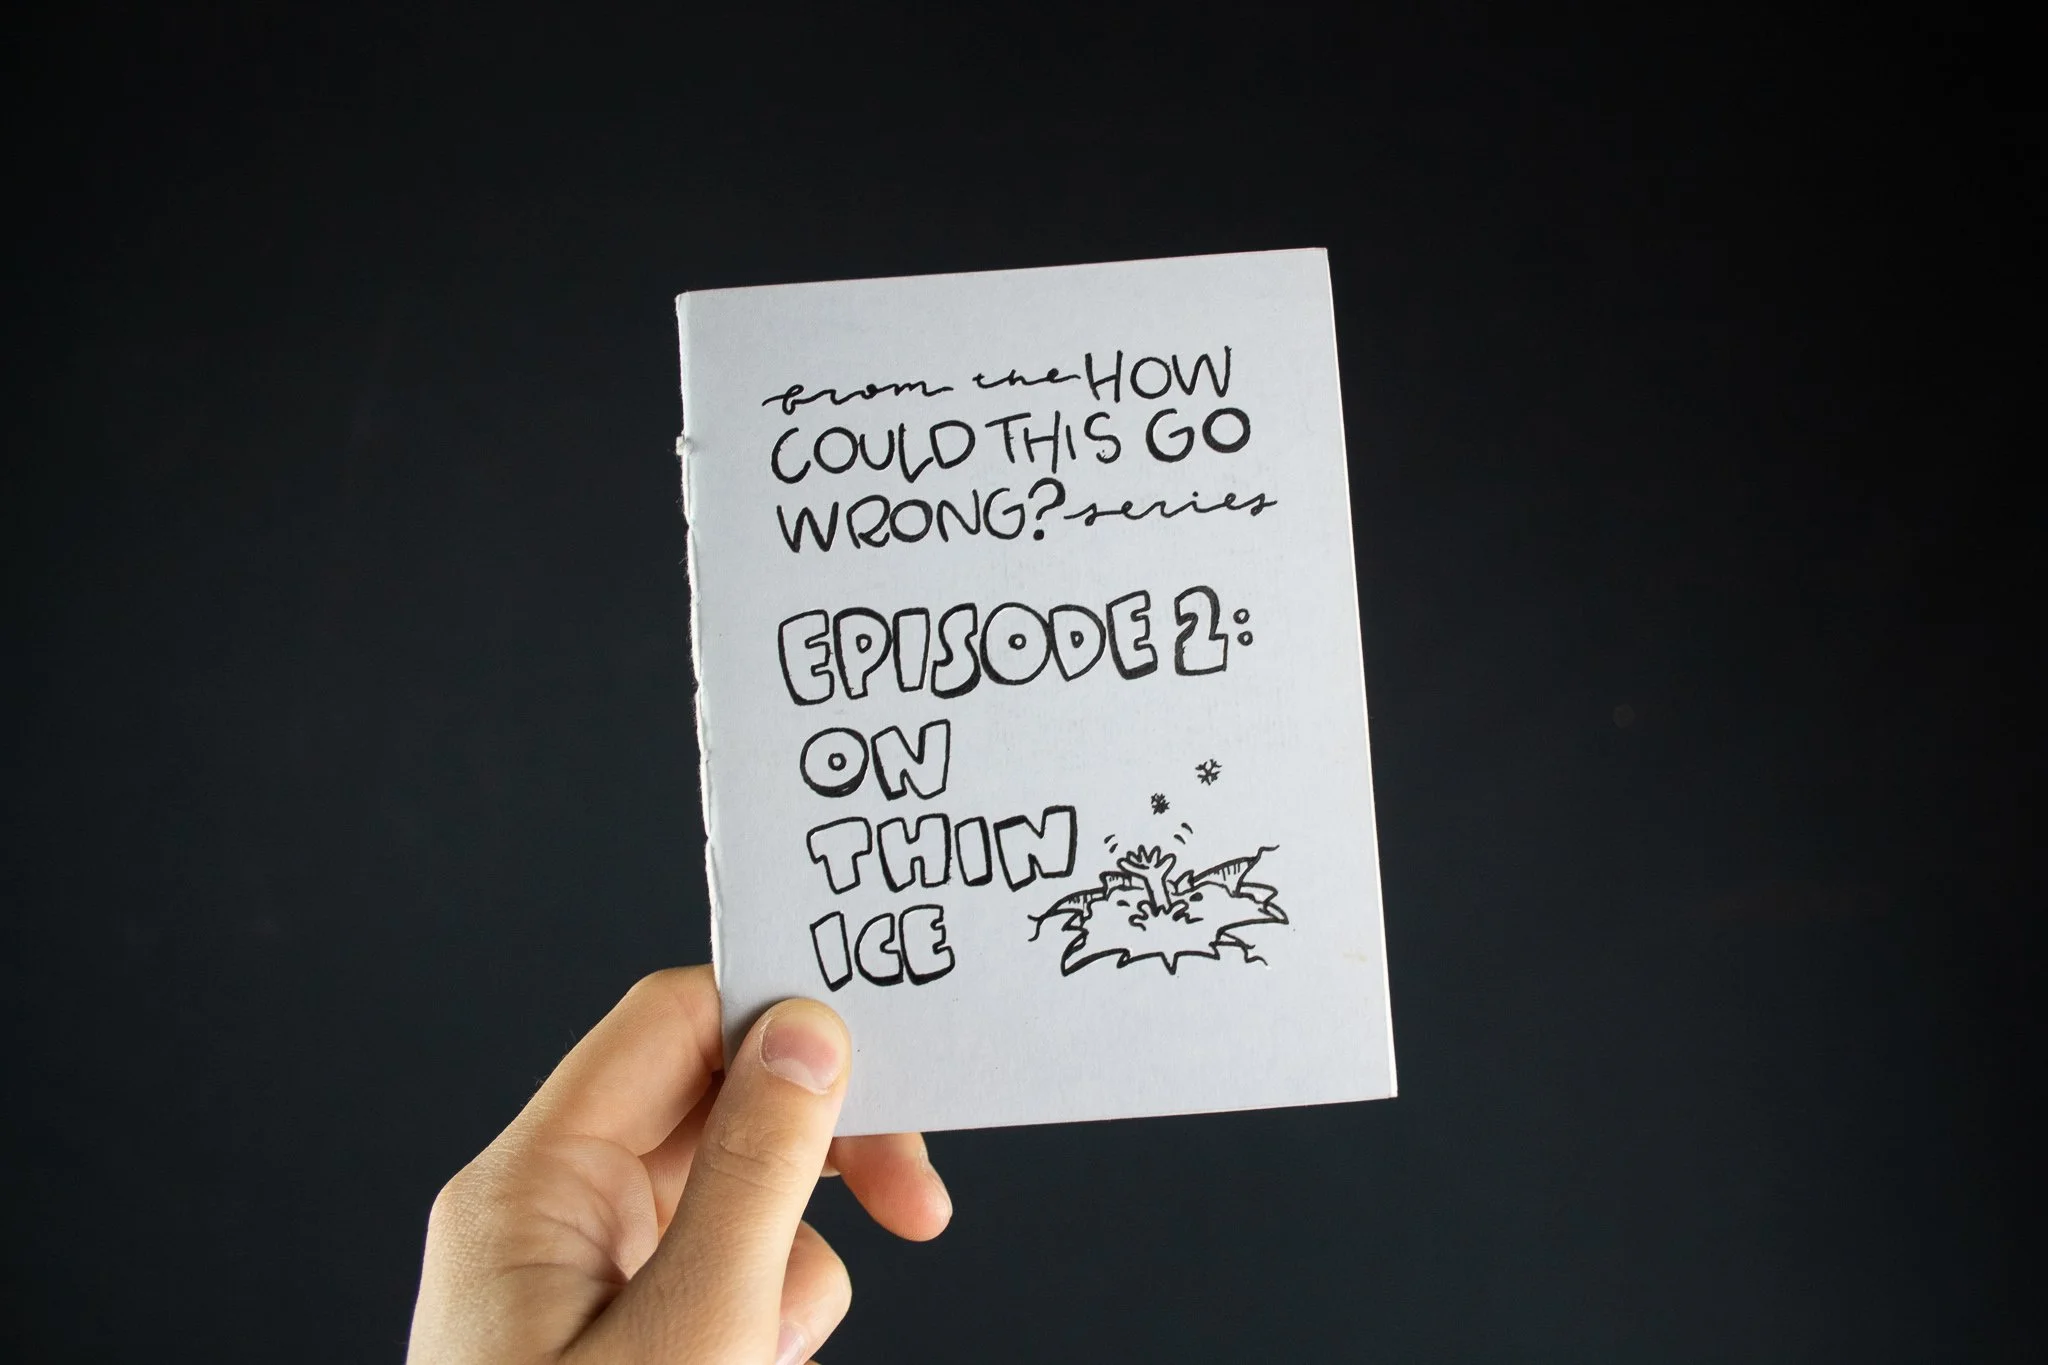 from the HOW
COULD THIS GO
WRONG? series
EPISODE 2:
ON
THIN
ICE